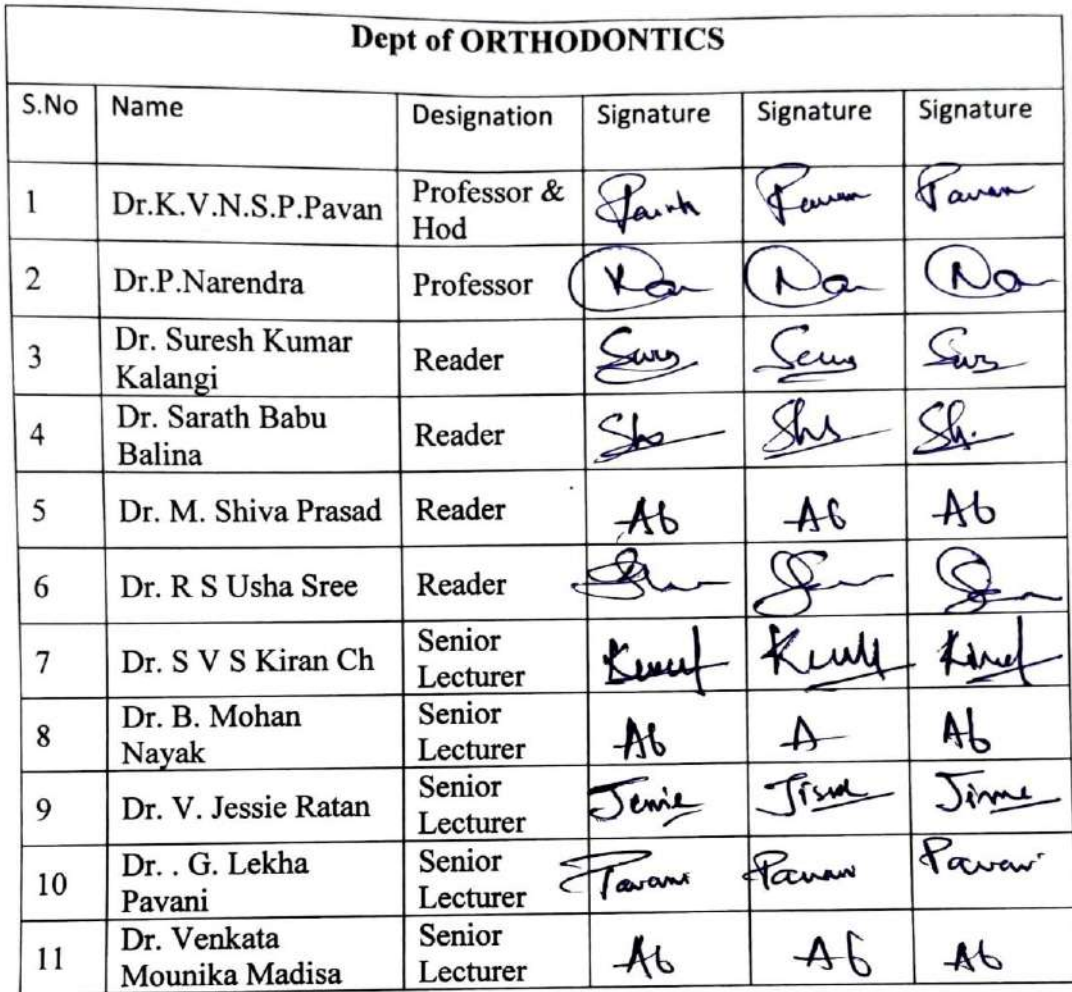 Dept of ORTHODONTICS
S.No Name Designation Signature Signature Signature
1 Dr.K.V.N.S.P.Pavan Professor & Hod Pavan Pavan
2 Dr.P.Narendra Professor
3 Dr. Suresh Kumar Kalangi Reader
4 Dr. Sarath Babu Balina Reader
5 Dr. M. Shiva Prasad Reader Ab Ab Ab
6 Dr. R S Usha Sree Reader
7 Dr. S V S Kiran Ch Senior Lecturer
8 Dr. B. Mohan Nayak Senior Lecturer Ab A Ab
9 Dr. V. Jessie Ratan Senior Lecturer
10 Dr. . G. Lekha Pavani Senior Lecturer Pavani Pavani Pavani
11 Dr. Venkata Mounika Madisa Senior Lecturer Ab Ab Ab